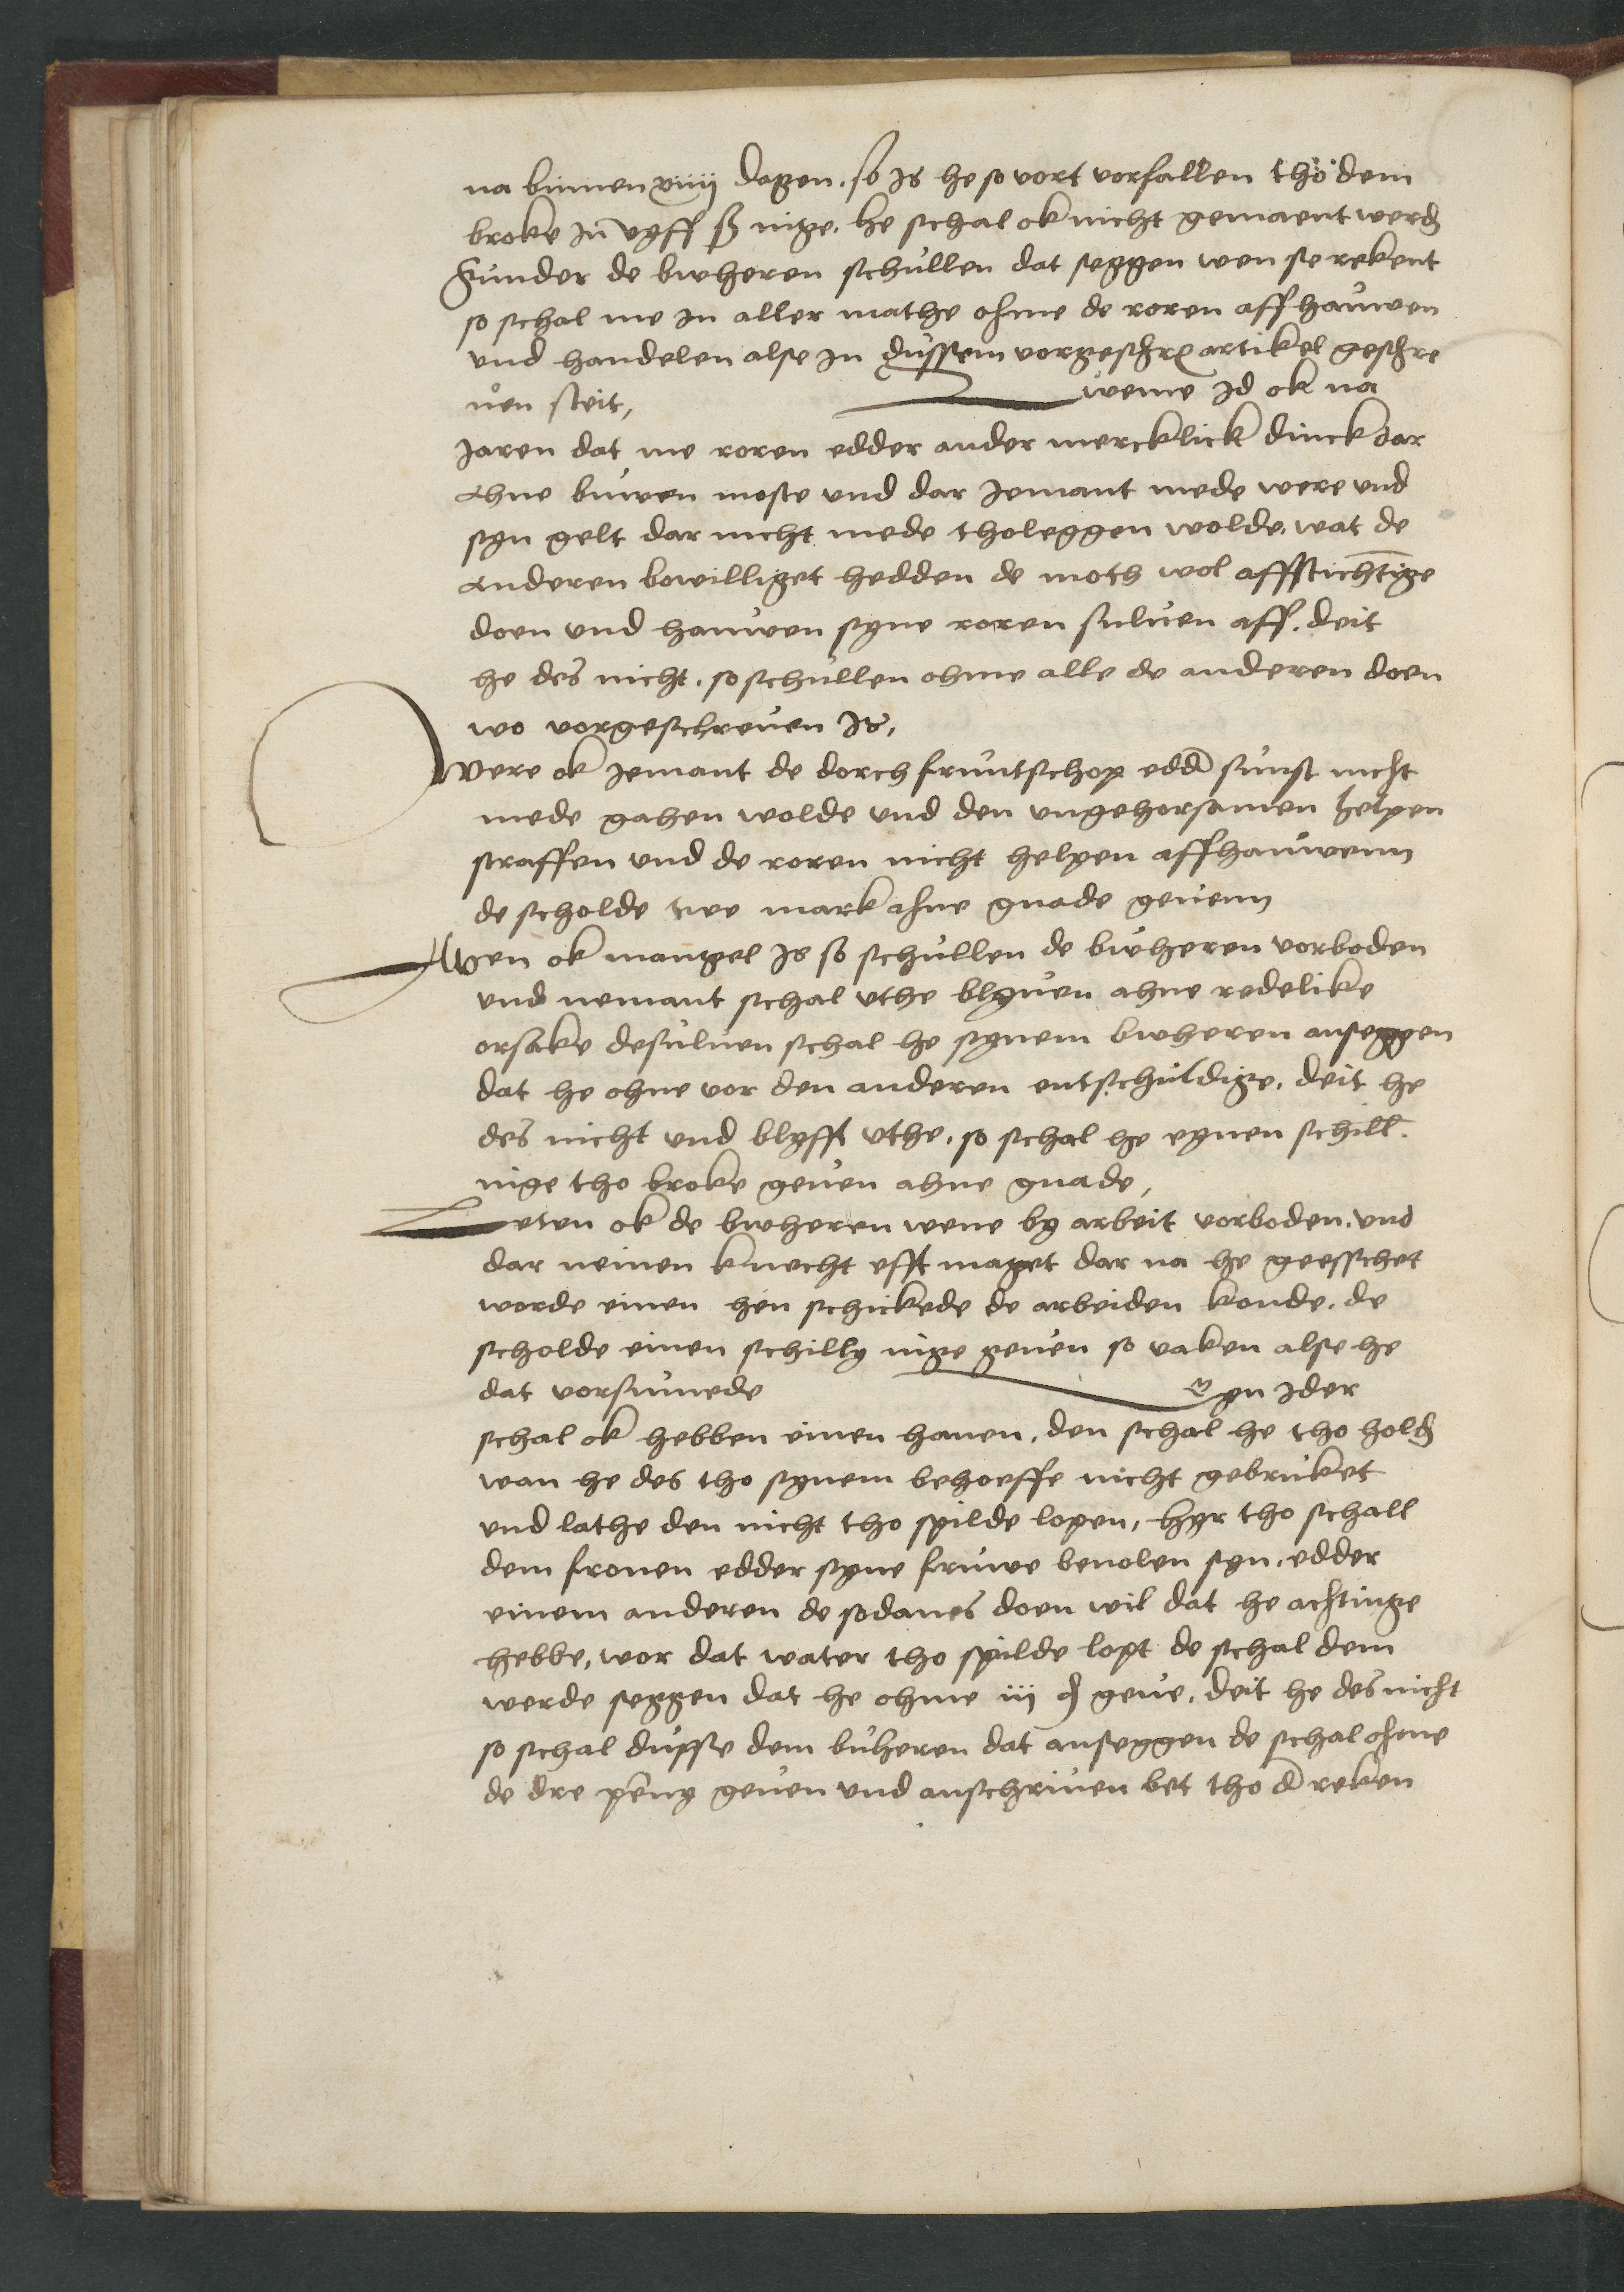 na binnen xiiij dagen. so is he so vort vorfallen thö dem
broke in vyff ß nige. he schal ok nicht gemaent werdē
sunder de bwheren schullen dat seggen wen se rekent
so schal me jn aller mathe ohme de roren affhauwen
vnd handelen alse jn dussem vorgeschrē artikel geschre
uen steit,
weme jd ok na
jaren dat me roren edder ander mercklick dinck dar
ahne buwen moste vnd dar jemant mede were vnd
syn gelt dar nicht mede tholeggen wolde. wat de
anderen bowilliget hedden de moth wol affstichtige
doen vnd hauwen syne roren suluen aff. deit
he des nicht. so schullen ohme alle de anderen doen
wo vorgeschreuen is,
Were ok jemant de dorch fruntschop edd̄ sunst nicht
mede gahen wolde vnd den vngehorsamen helpen
straffen vnd de roren nicht helpen affhauwenn
de scholde twe mark ahne gnade geuenn
Wen ok mangel is so schullen de bwheren vorboden
vnd nemant schal vthe blyuen ahne redelike
orsake desuluen schal he synem bwheren anseggen
dat he ohne vor den anderen entschuldige. deit he
des nicht vnd blyfft vthe. so schal he eynen schill.
nige tho broke geuen ahne gnade,
Leten ok de bwheren wene by arbeit vorboden. vnd
dar neinen knecht efft maget dar na he geesschet
worde einen hen schickede de arbeiden konde. de
scholde einen schilly nige geuen so vaken alse he
dat vorsumede
Eyn jder
schal ok hebben einen hanen. den schal he tho holdē
wan he des tho synem behoeffe nicht gebruket
vnd lathe den nicht tho spilde lopen, hyr tho schall
dem fronen edder syne fruwe beuolen syn. edder
einem anderen de sodanes doen wil dat he achtinge
hebbe, wor dat water tho spilde lopt de schal dem
werde seggen dat he ohme iij ₰ geue. deit he des nicht
so schal dusse dem buheren dat anseggen de schal ohme
de dre peny geuen vnd anschriuen bet tho d̄ reken